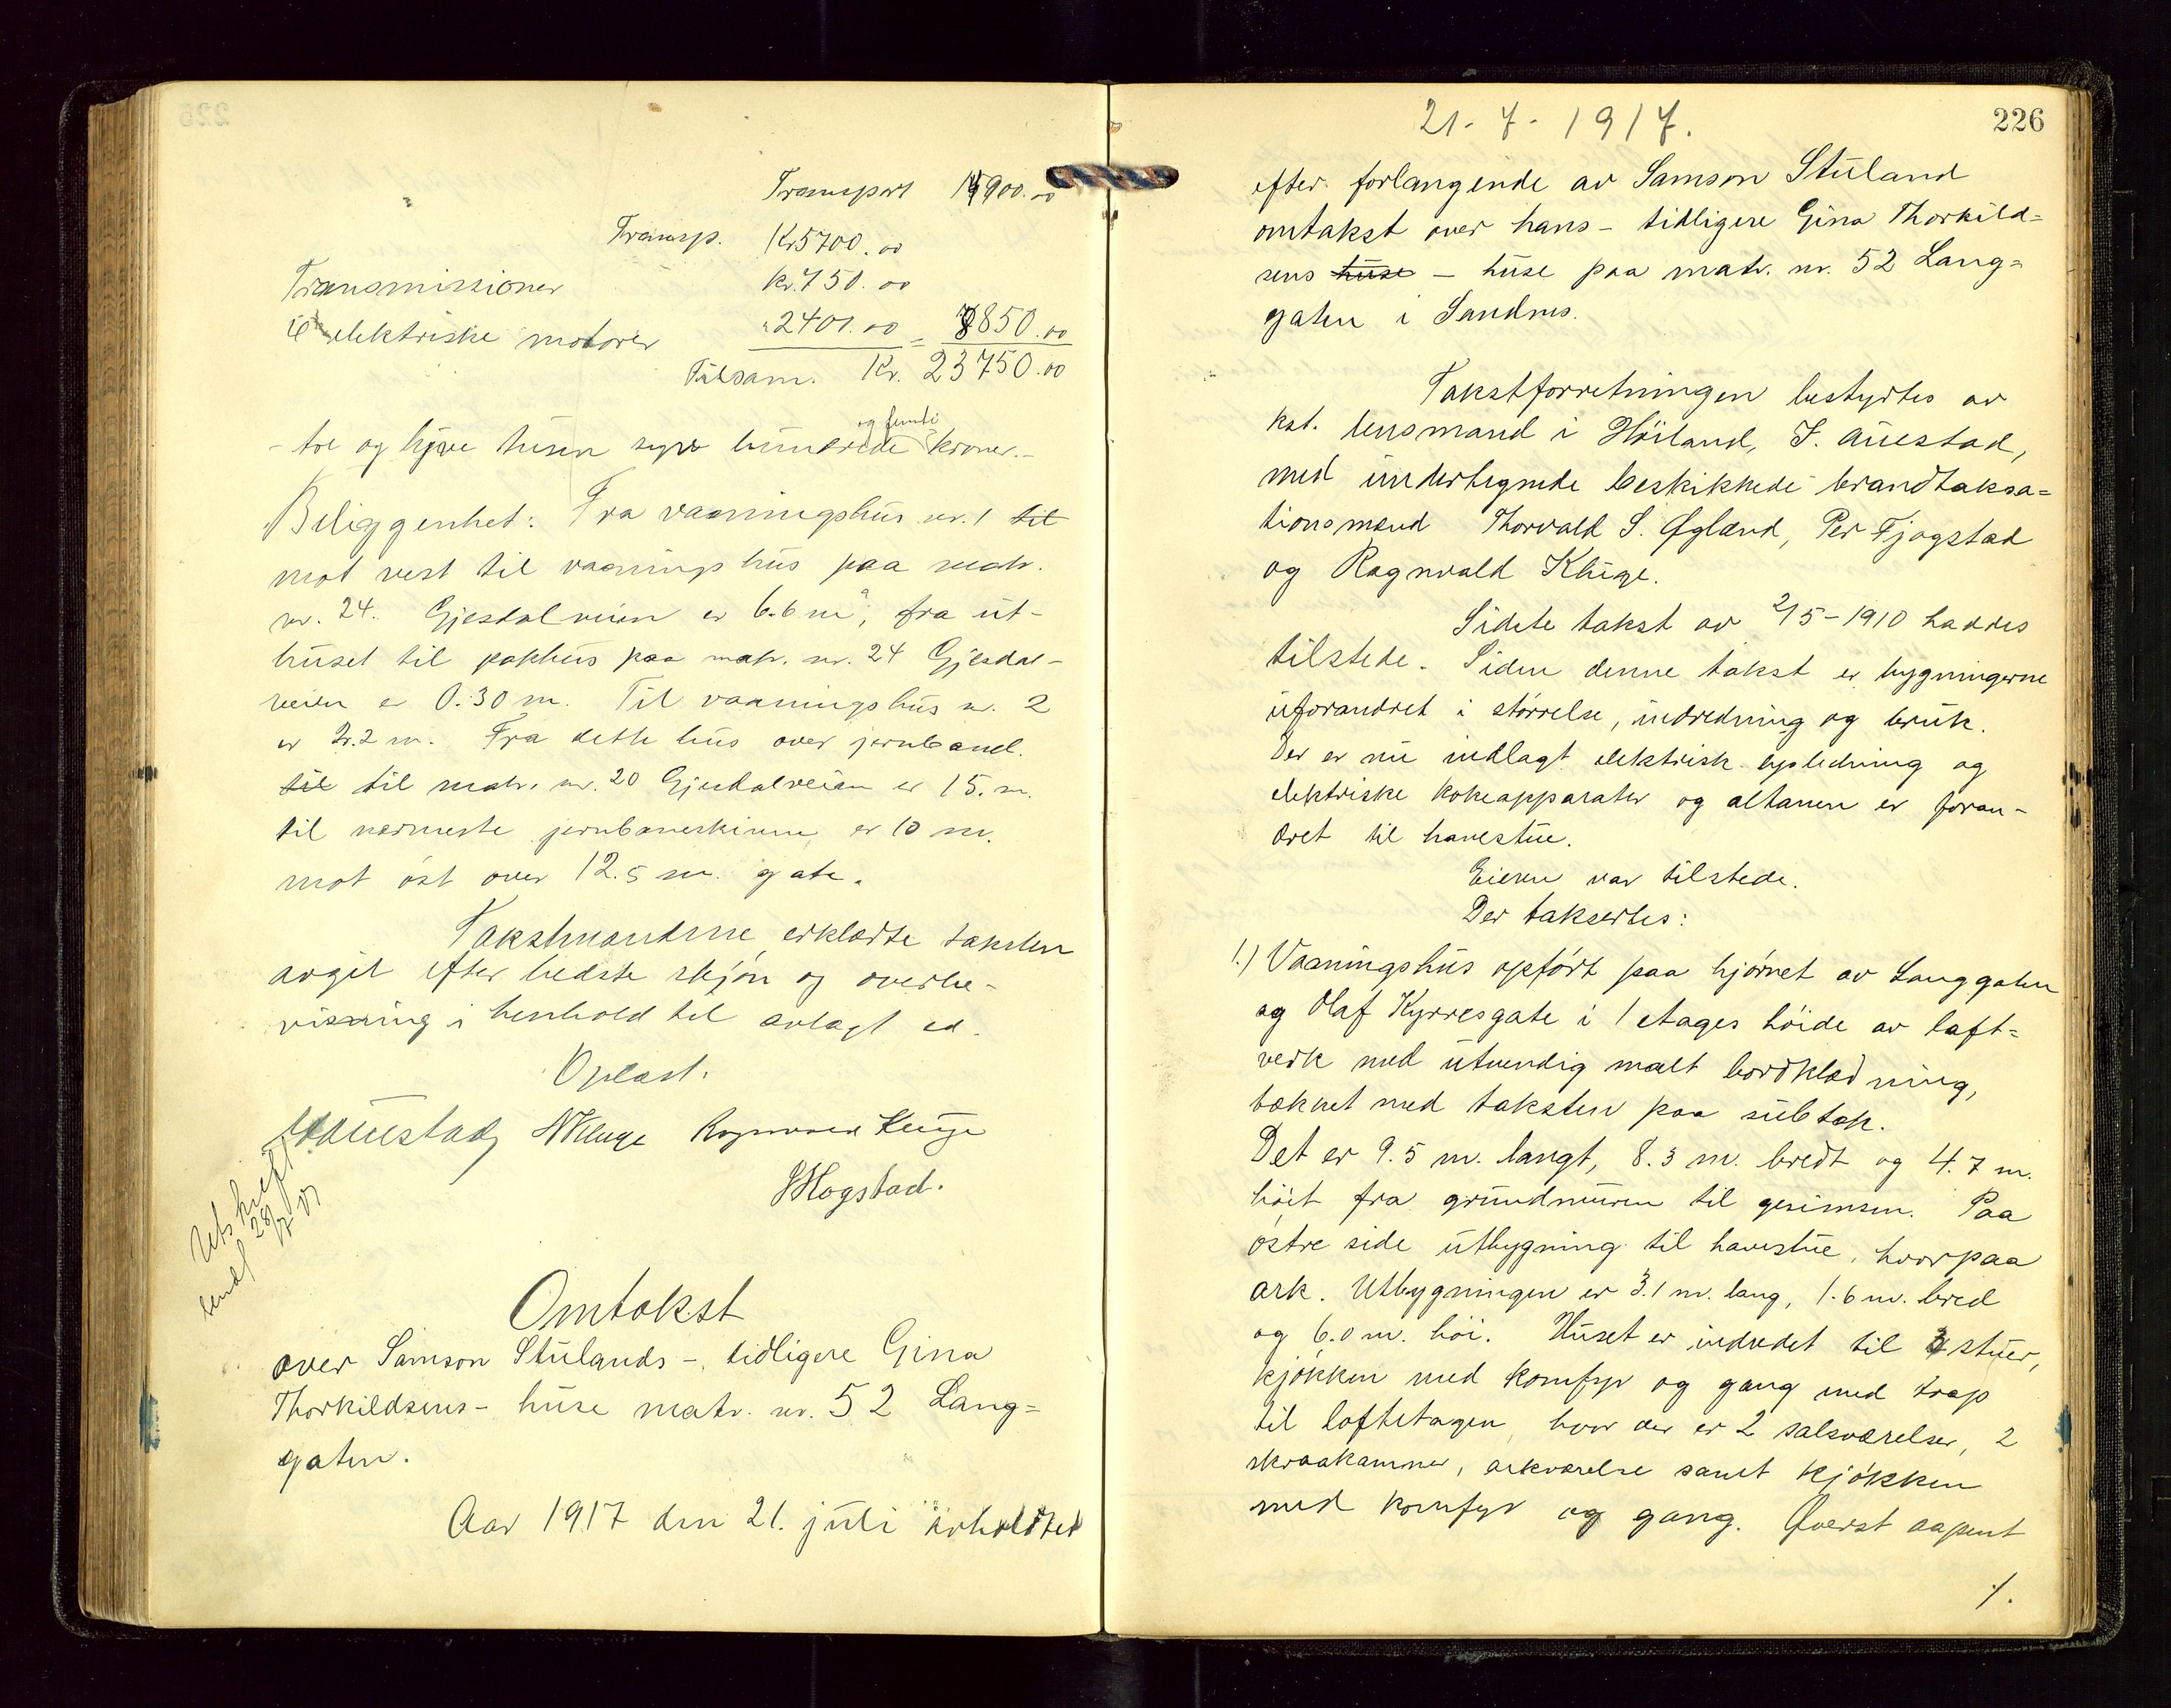 Transport 900.00
Transp. Kr 5700.00
Transmissioner Kr. 750.00
elektriske motorer 2401.00 = 850.00
Tilsam. Kr. 23750.00
- tre og tyve tusen syv hundrede og femti kroner.-
Beliggenhet: Fra vaaningshus nr. 1 til
mot vest til vaaningshus paa matr.
nr. 24. Gjesdalveien er 6.6 m, fra ut-
huset til pakhus paa matr. nr. 24 Gjesdal-
veien er 0.30 m. Til vaaningshus nr. 2
er 2.2 m. Fra dette hus over jernbanel.
til til matr. nr. 20 Gjesdalveien er 15. m.
til nærmeste jernbaneskinne er 10 m.
mot øst over 12.5 m. gate.
Takstmændene erklærte taksten
avgit efter bedste skjøn og overbe-
visning i henhold til avlagt ed.
Oplæst.
Auestad, Kluge Ragnvald Kluge
Mogstad.
Utskrift
sendt 28/7 17
Omtakst
over Samson Stulands - tidligere Gina
Thorkildsens - huse matr. nr. 52 Lang=
gaten.
Aar 1917 den 21. juli avholdtes
21-7-1917.
226
efter forlangende av Samson Stuland
omtakst over hans - tidligere Gina Thorkild=
sens huse - huse paa matr. nr. 52 Lang=
gaten i Sandnes.
Takstforretningen bestyrtes av
kst. lensmand i Høiland, J. Auestad,
med undertegnede beskikkede brandtaksa=
tionsmænd Thorvald S. Øglænd, Per Fjogstad
og Ragnvald Kluge.
Sidste takst av 2/5-1910 haddes
tilstede. Siden denne takst er bygningerne
uforandret i størrelse, indredning og bruk.
Der er nu indlagt elektrisk lysledning og
elektriske kokeapparater og altanen er foran-
dret til havestue.
Eieren var tilstede.
Der taksertes:
1.) Vaaningshus opført paa hjørnet av Langgaten
og Olaf Kyrresgate i 1 etages høide av laft=
verk med utvendig malt bordklædning,
tækket med taksten paa subtak.
Det er 9.5 m. langt, 8.3 m. bredt og 4.7 m.
høit fra grundmuren til gesimsen. Paa
østre side utbygning til havestue, hvorpaa
ark. Utbygningen er 3.1 m. lang, 1.6 m. bred
og 6.0 m. høi. Huset er indredet til 3 stuer,
kjøkken med komfyr og gang med trap
til loftetagen, hvor der er 2 salsværelser, 2
skraakammer, arkværelse samt kjøkken
med komfyr og gang. Øverst aapent
./.